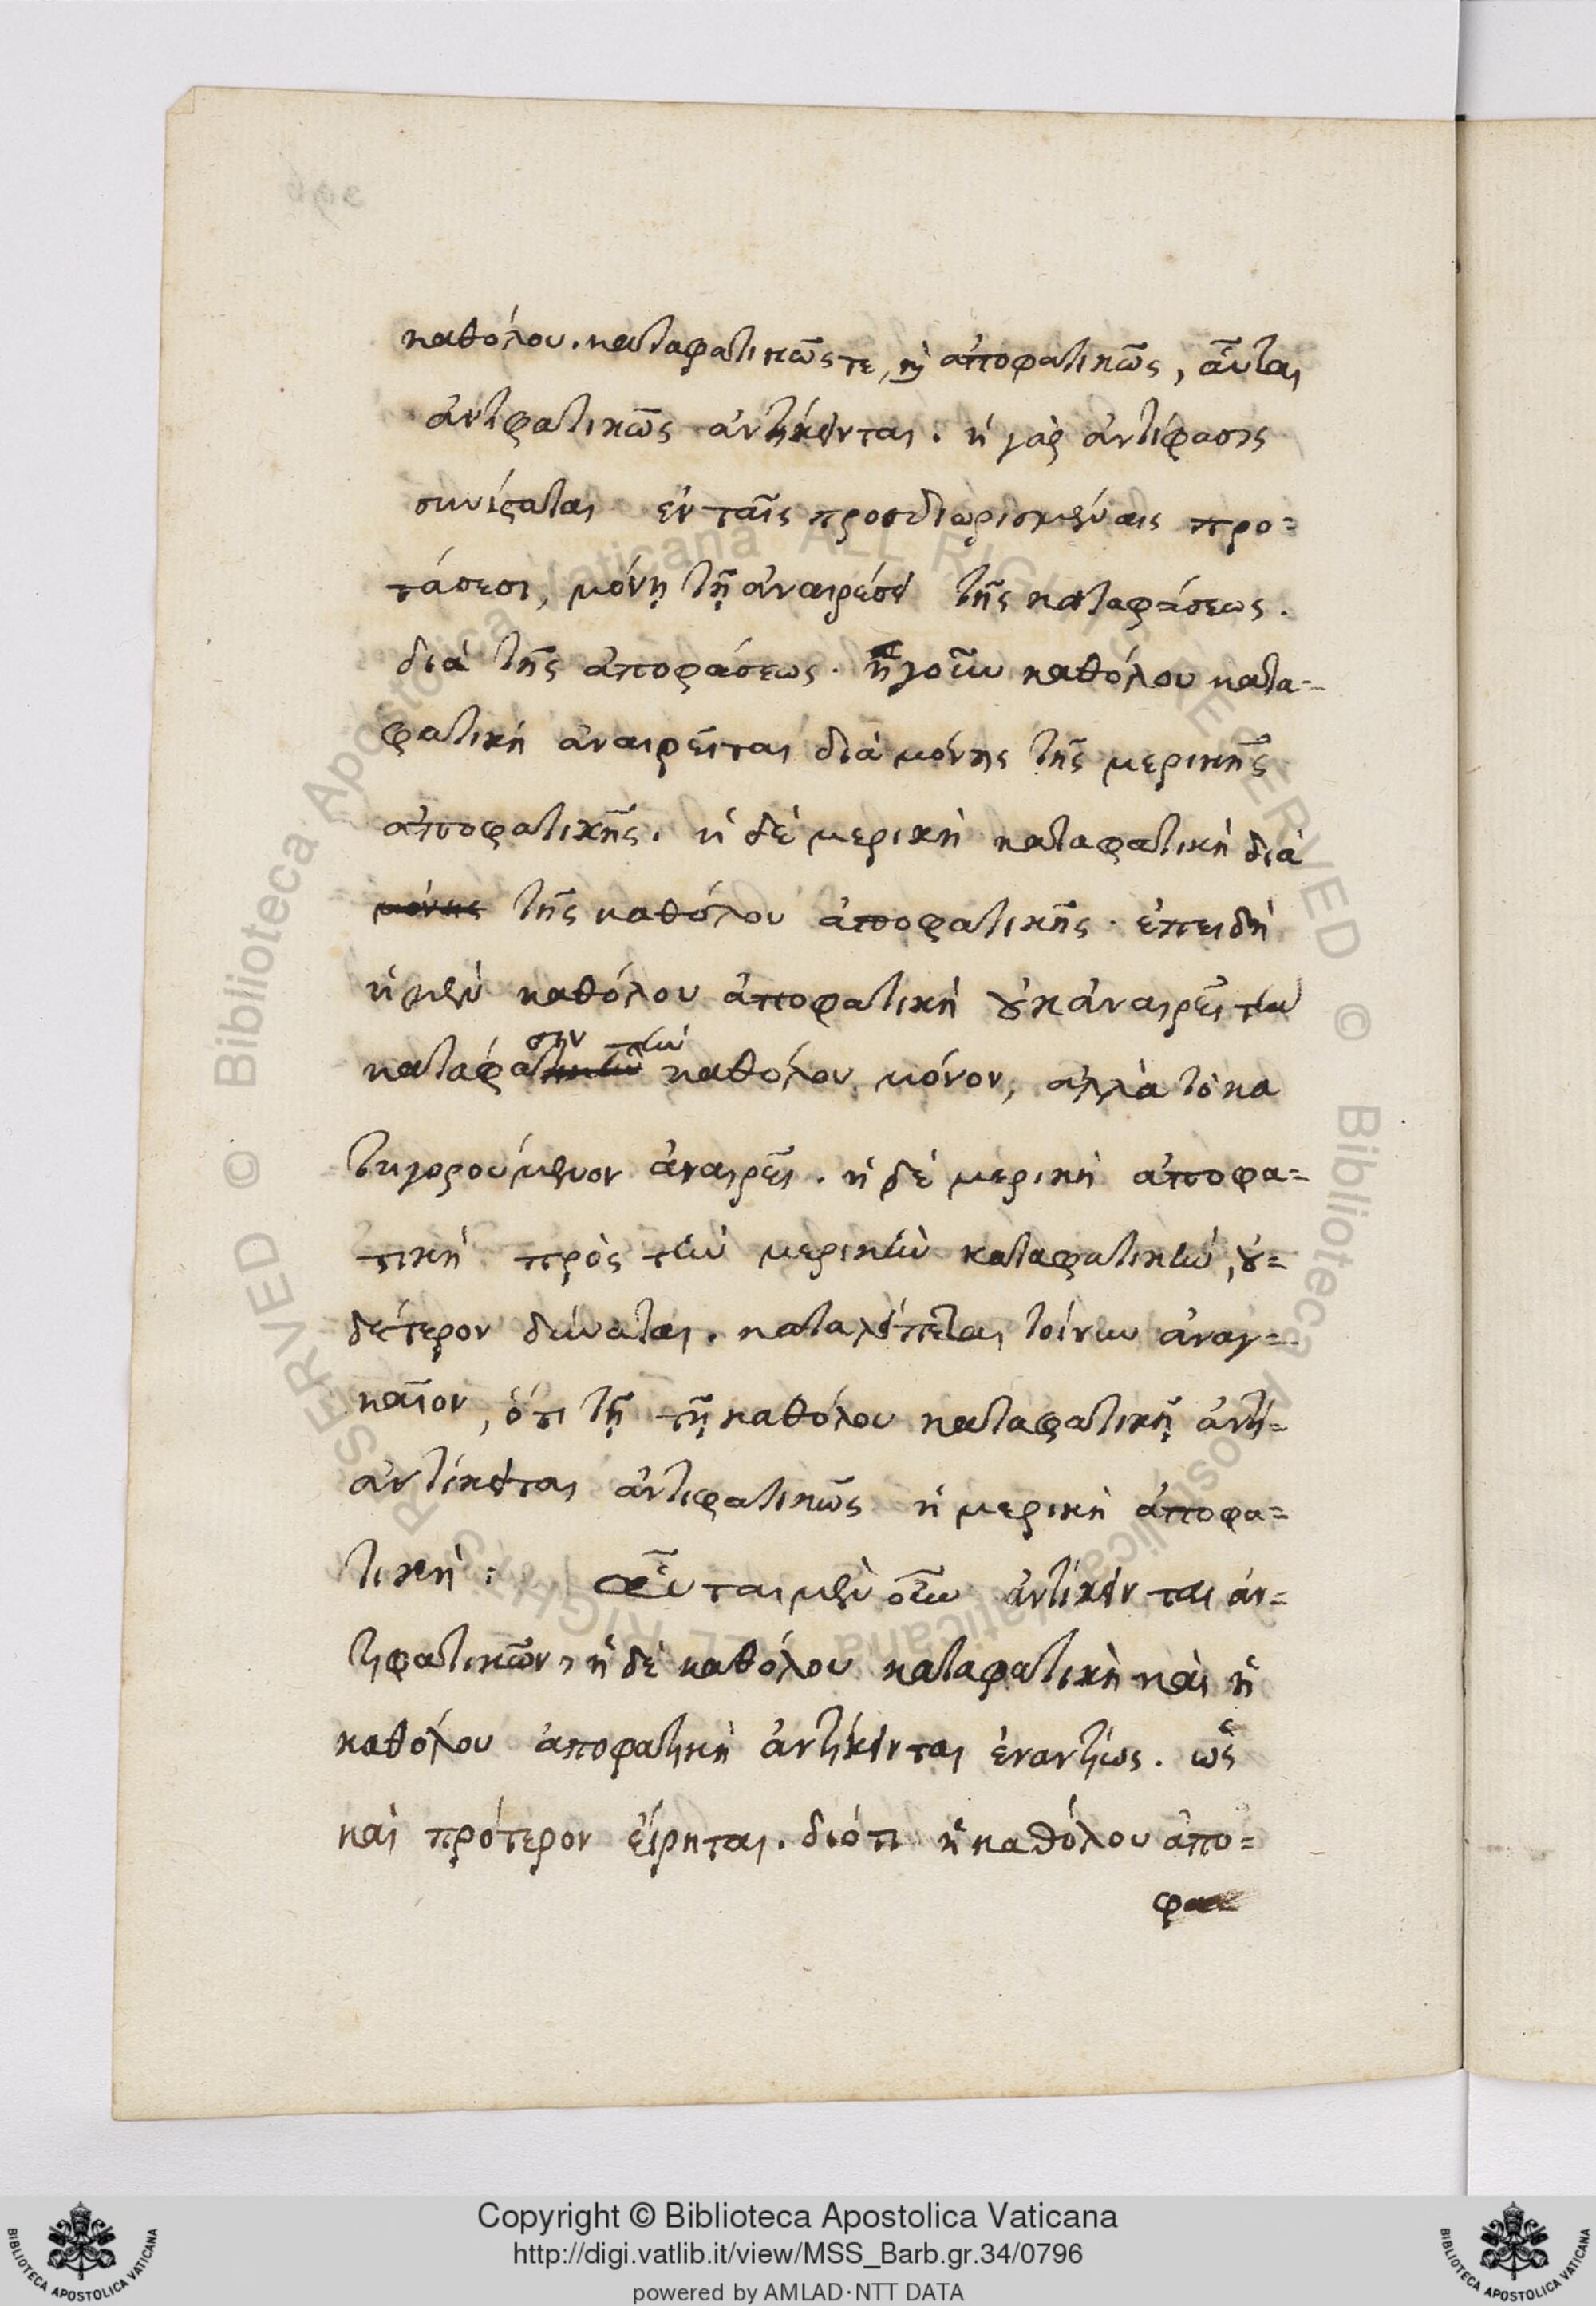 καθόλου. καταφατικῶς τε, καὶ ἀποφατικῶς, αὗται
ἀντιφατικῶς ἀντίκεινται. ἡ γὰρ ἀντίφασις
συνίσταται ἐν ταῖς προσδιωρισμέναις προ=
τάσεσι, μόνῃ τῇ ἀναιρέσει τῆς καταφάσεως.
διὰ τῆς ἀποφάσεως. ἡ γοῦν καθόλου κατα=
φατικὴ ἀναιρεῖται διὰ μόνης τῆς μερικῆς
ἀποφατικῆς. ἡ δὲ μερικὴ καταφατικὴ διὰ
μόνης τῆς καθόλου ἀποφατικῆς. ἐπειδὴ
ἡ μὲν καθόλου ἀποφατικὴ οὐκ ἀναιρεῖ τὴν
κατάφασιν τὴν καθόλου μόνον, ἀλλὰ τὸ κα
τηγορούμενον ἀναιρεῖ. ἡ δὲ μερικὴ ἀποφα=
τικὴ πρὸς τὴν μερικὴν καταφατικὴν, οὐ=
δέτερον δύναται. καταλείπεται τοίνυν ἀναγ=
καῖον, ὅτι τῇ τῇ καθόλου καταφατικῇ ἀντι=
ἀντίκειται ἀντιφατικῶς ἡ μερικὴ ἀποφα=
τική: αὗται μὲν οὖν ἀντίκεινται ἀν=
τιφατικῶν, ἡ δὲ καθόλου καταφατικὴ καὶ ἡ
καθόλου ἀποφατικὴ ἀντίκεινται ἐναντίως. ὡς
καὶ πρότερον εἴρηται. διότι ἡ καθόλου ἀπο=
φα
© Biblioteca Apostolica Vaticana ALL RIGHTS RESERVED © Biblioteca Apostolica Vaticana ALL RIGHTS RESERVED
BIBLIOTECA APOSTOLICA VATICANA
Copyright © Biblioteca Apostolica Vaticana
http://digi.vatlib.it/view/MSS_Barb.gr.34/0796
powered by AMLAD·NTT DATA
BIBLIOTECA APOSTOLICA VATICANA